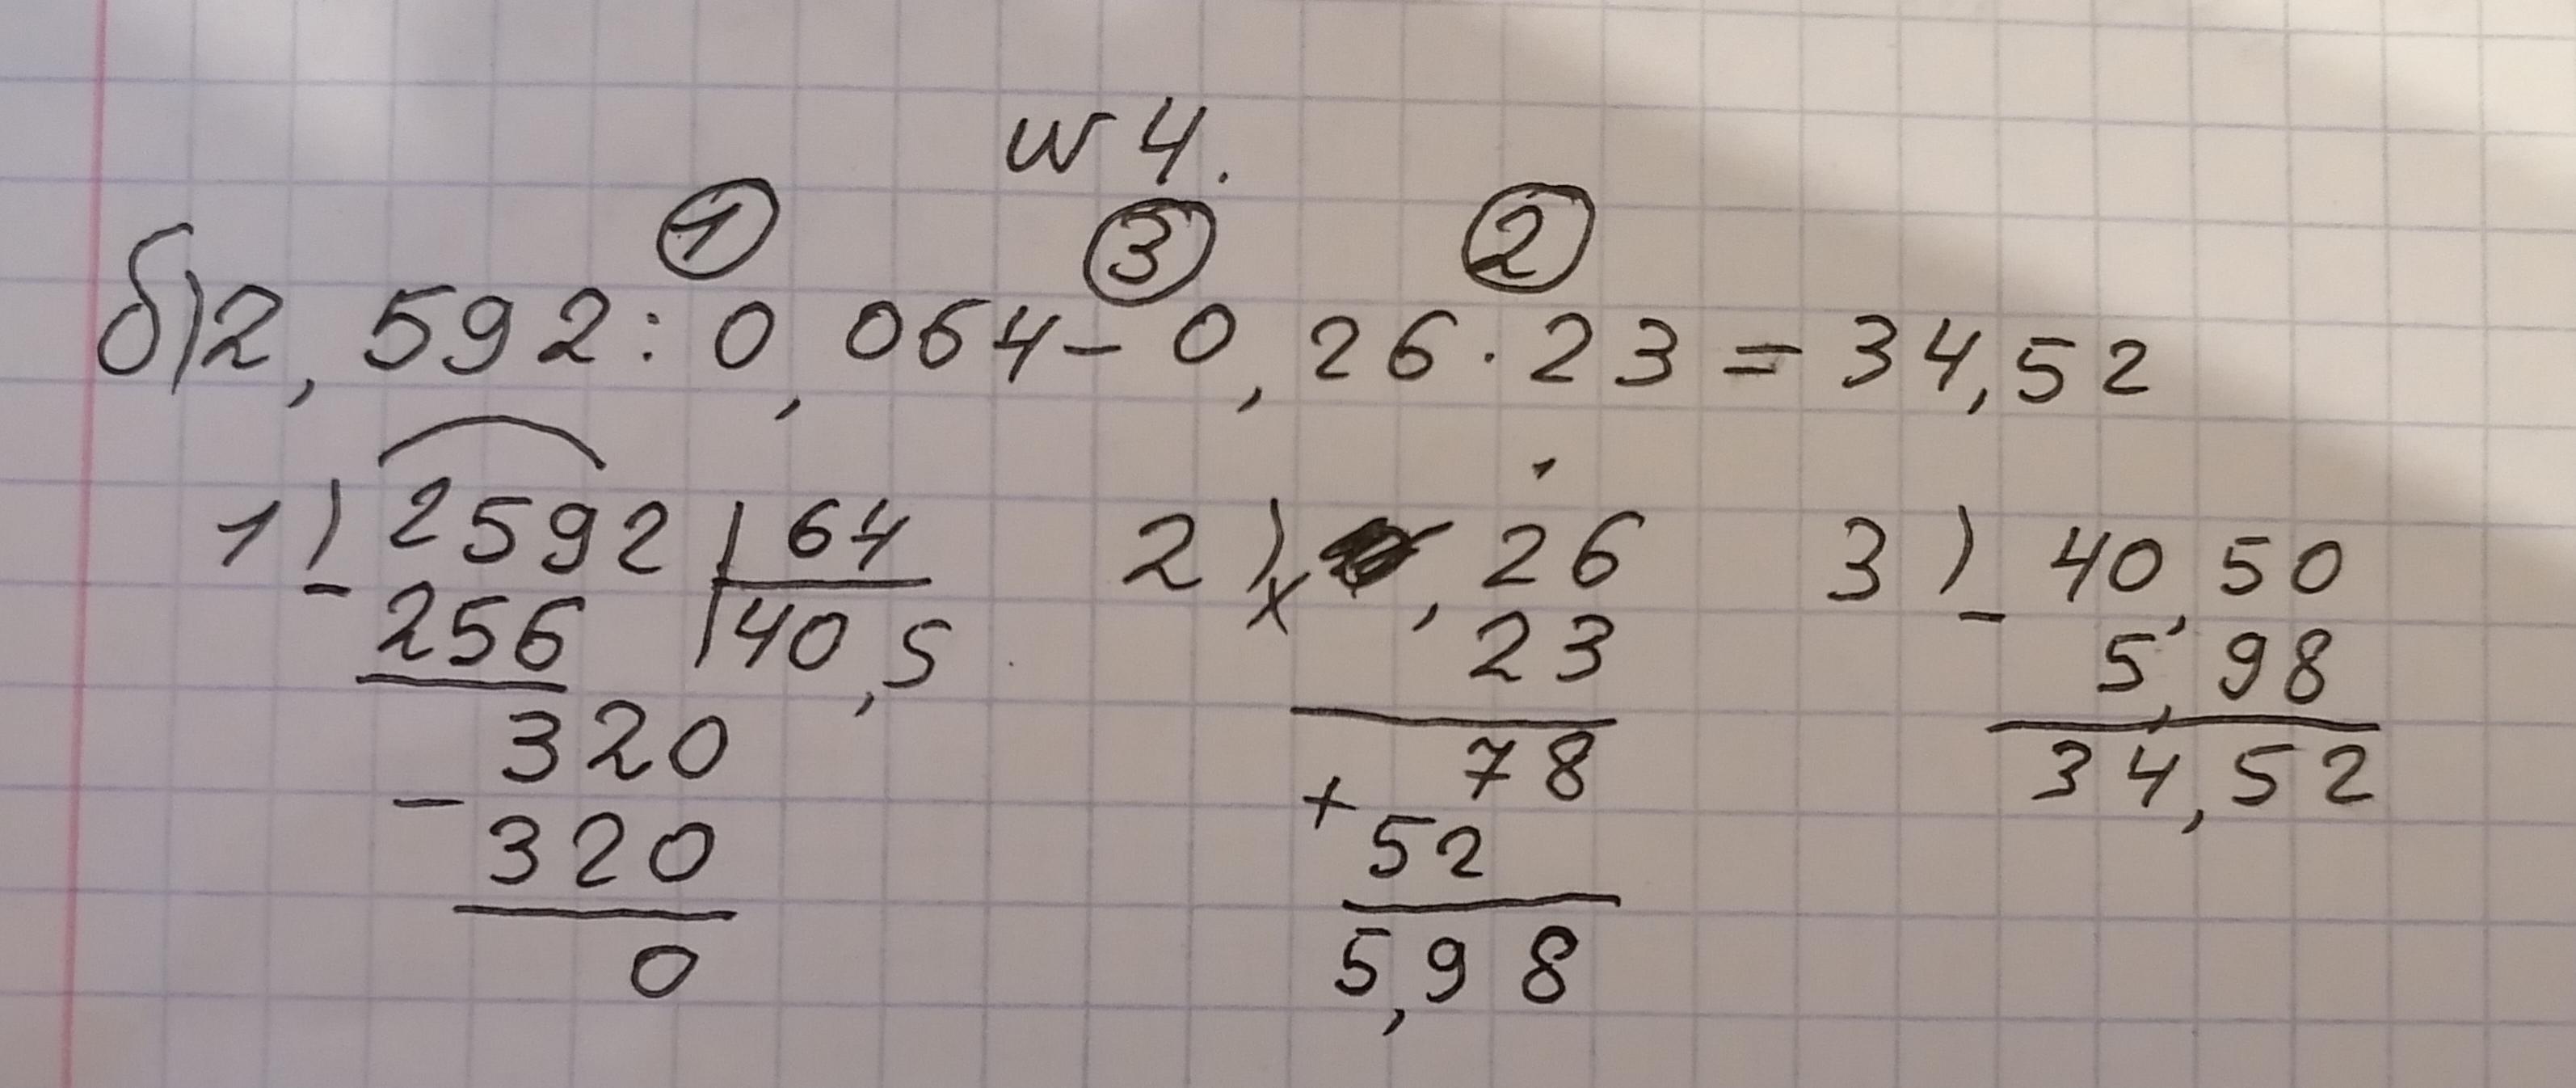 № 4.
① ③ ②
б) 2,592 : 0,064 - 0,26 · 23 = 34,52
1) 2592 | 64
- 256 | 40,5
320
- 320
0
2) × ,26
23
78
+ 52
5,98
3) - 40,50
5,98
34,52